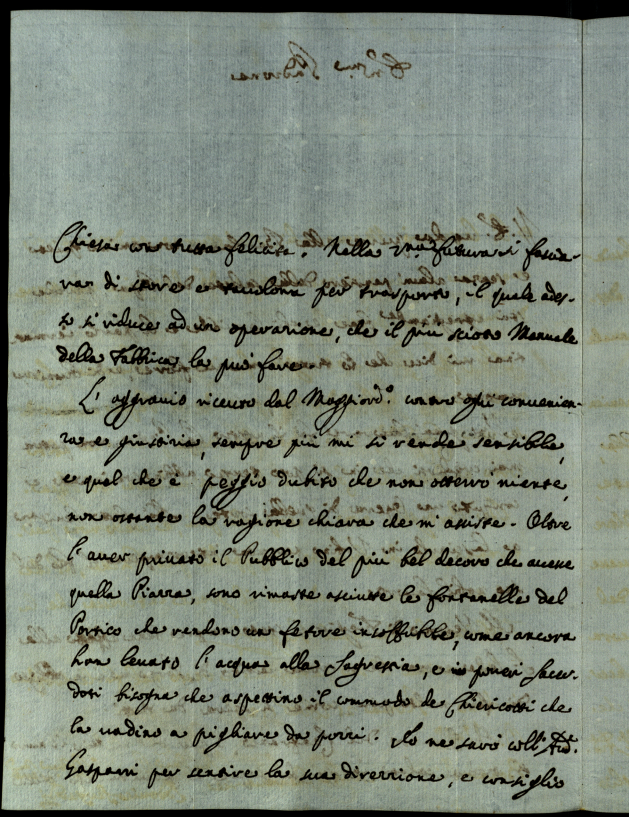 Chiesa con tutta felicità. Nella 7mna futura si fascia-
ran di stove e tavoloni per trasporto, il quale ades-
so si riduce ad un operazione, che il più sciocco Manuale
della Fabbrica la può fare
L'aggravio ricevuto dal Maggiord.º contro ogni convenien-
za e giustizia, sempre più mi si rende sensibile,
e quel che è peggio dubito che non otterrò niente,
non ostante la ragione chiara che mi assiste. Oltre
l'aver privato il Pubblico del più bel decoro che avesse
quella Piazza, sono rimaste asciutte le fontanelle del
Portico che rendono un fetore insoffribile, come ancora
han levato l'acqua alla Sagrestia, e i poveri Sacer-
doti bisogna che aspettino il commodo de Chiericotti che
la vadino a pigliare da pozzi. Io ne sarò coll'
Gasparri per sentire la sua direzzione, e consiglio